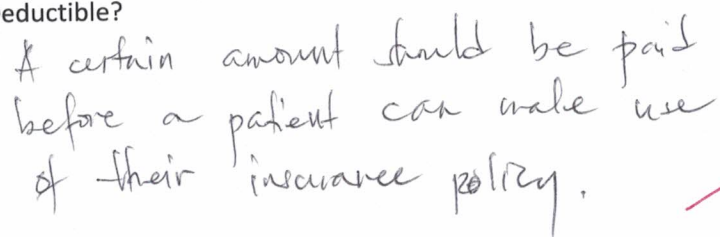 eductible?
A certain amount should be paid
before a patient can make use
of their insurance policy.